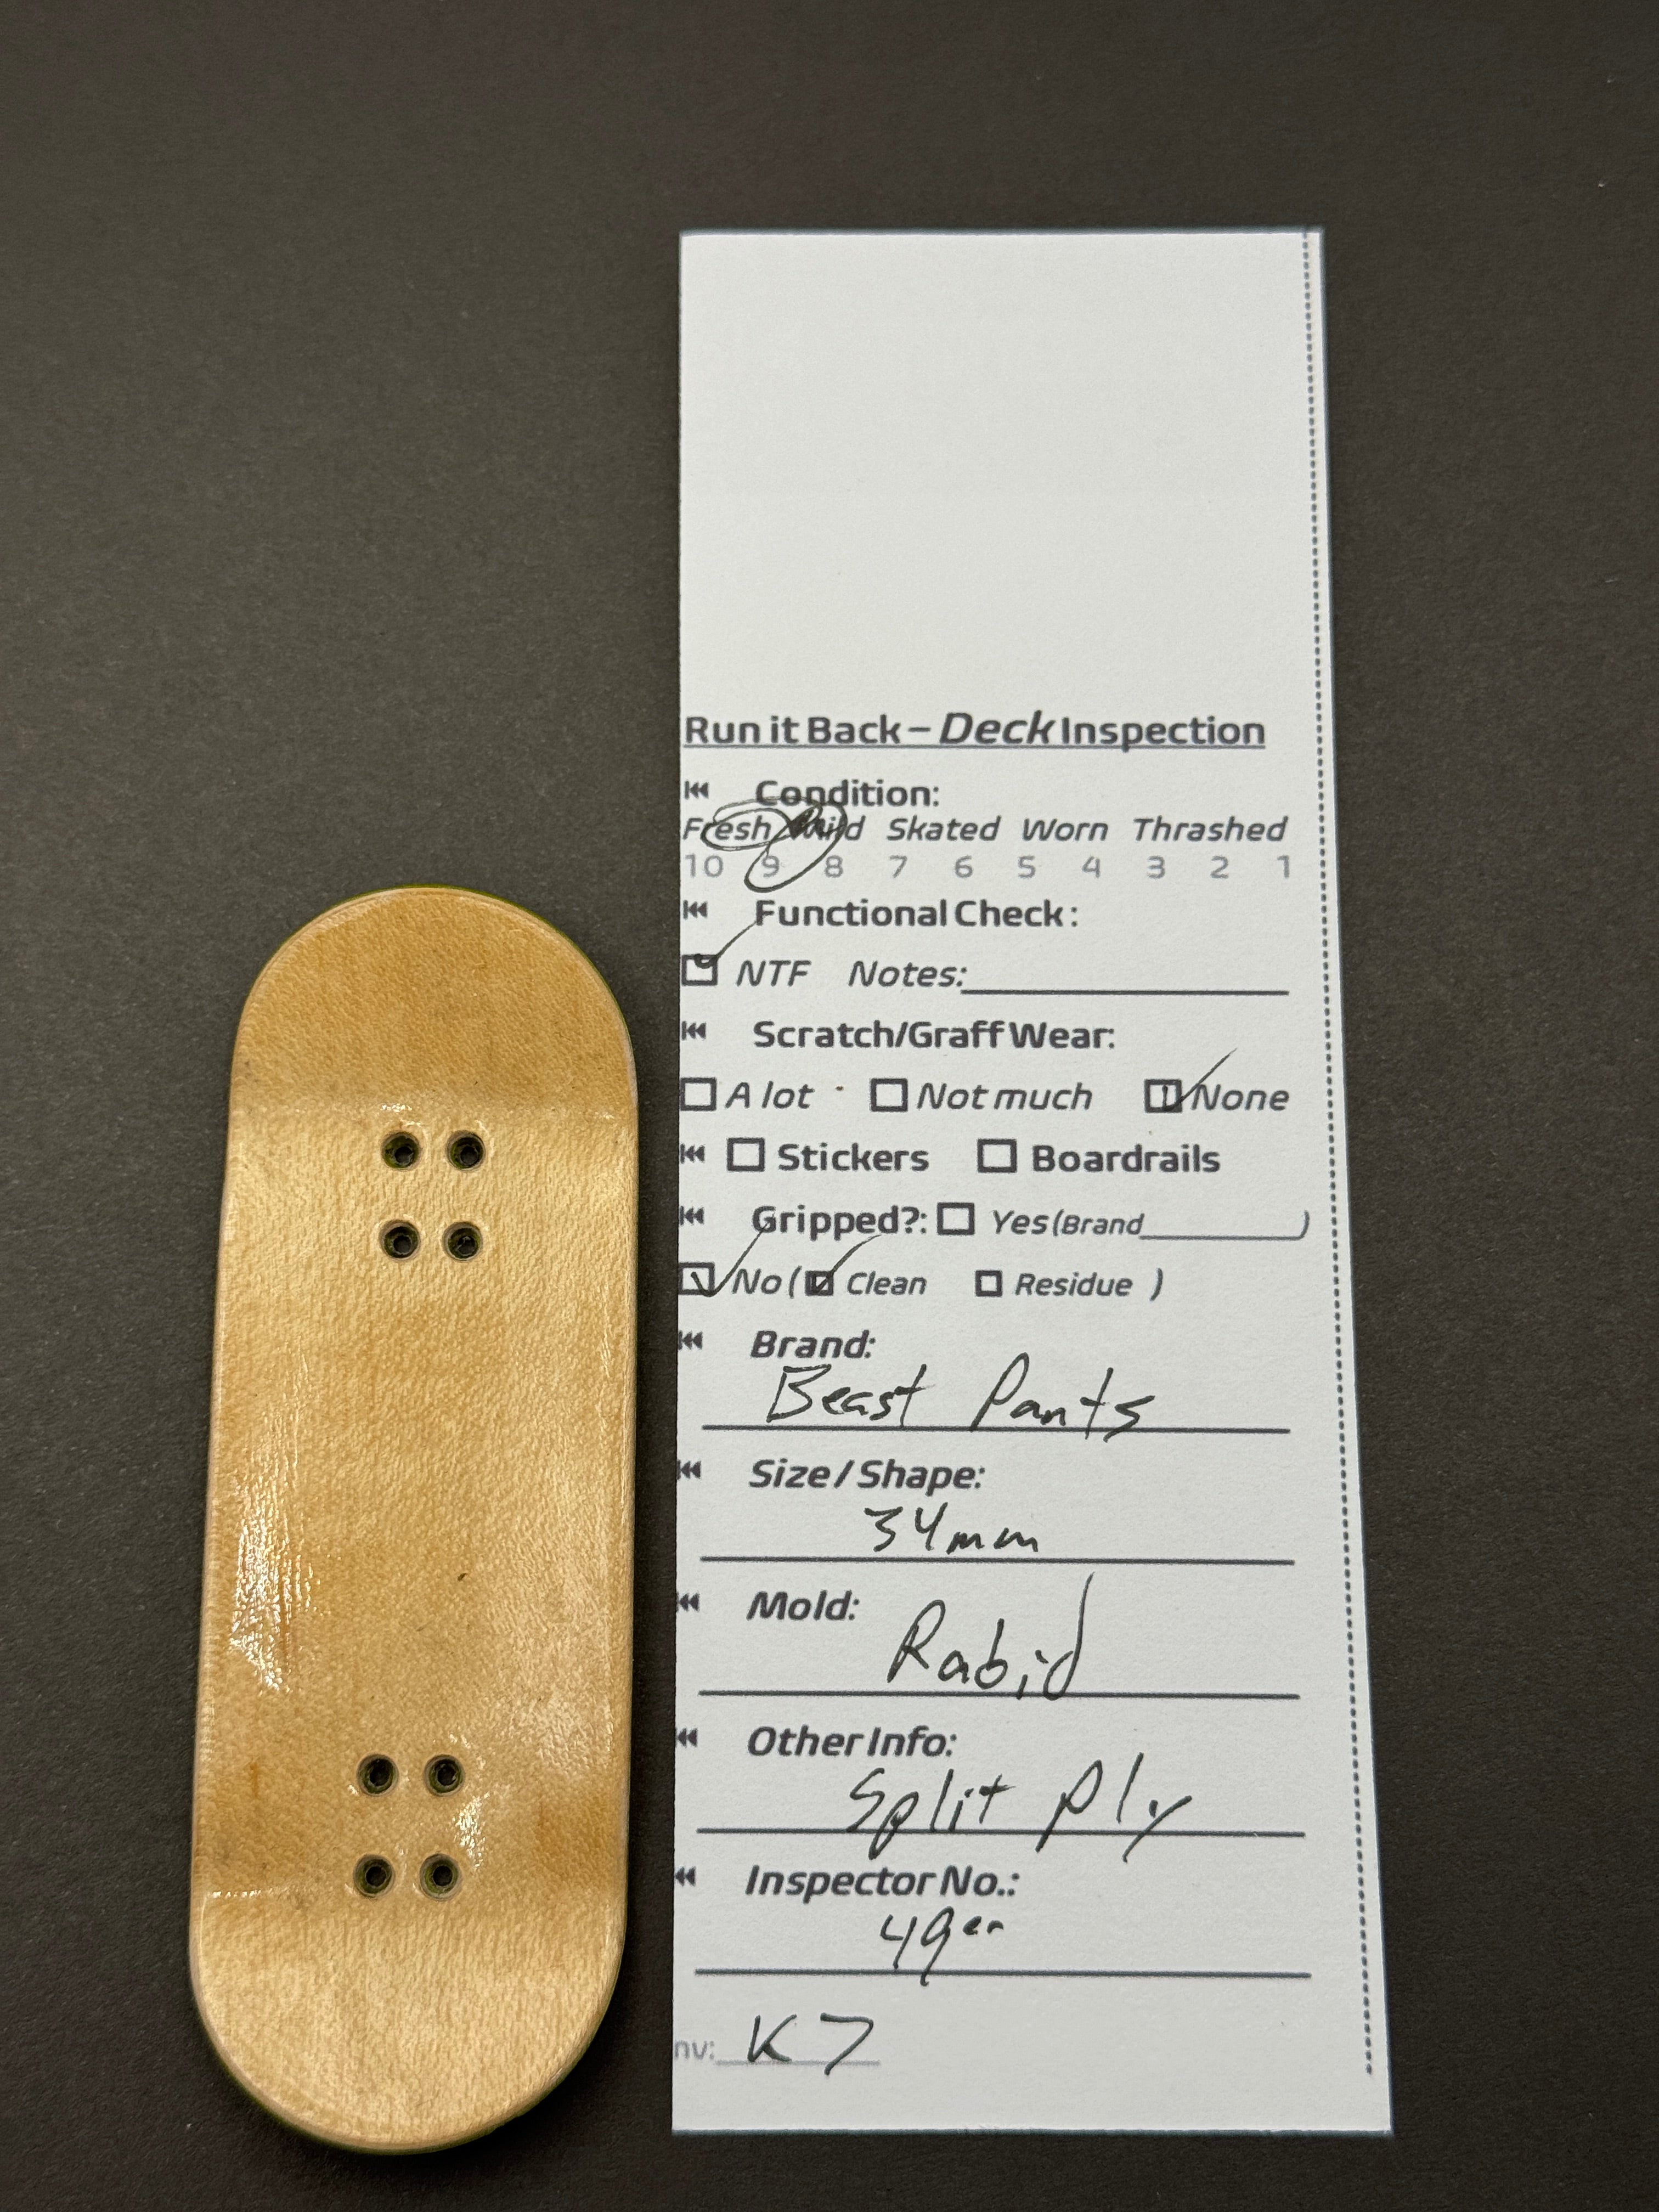 Run it Back – Deck Inspection
Condition:
Fresh Mild Skated Worn Thrashed
10 9 8 7 6 5 4 3 2 1
Functional Check:
NTF Notes:
Scratch/Graff Wear:
A lot Not much None
Stickers Boardrails
Gripped?: Yes (Brand )
No ( Clean Residue )
Brand:
Beast Pants
Size / Shape:
34mm
Mold:
Rabid
Other Info:
Split Ply
Inspector No.:
49er
nv: K7